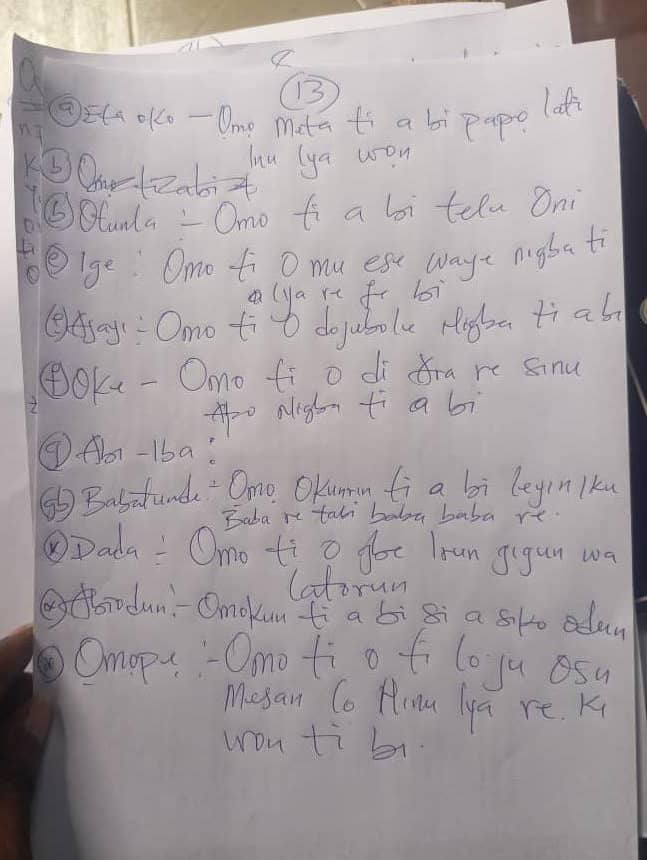 13
a Eta oko - Omo Meta ti a bi papo lati
Inu Iya won
b
b Otunla :- Omo ti a bi telu Oni
e Ige : Omo ti O mu ese waye nigba ti
a Iya re fe bi
e Ajayi :- Omo ti O dojubole Nigba ti a bi
f Oke - Omo ti o di Ara re sinu
Apo Nigba ti a bi
g Abi-Iba :
Babatunde :- Omo Okunrin ti a bi leyin Iku
Baba re tabi baba baba re.
Dada :- Omo ti o gbe Irun gigun wa
latorun
Abiodun :- Omokun ti a bi si a siko odun
Omope :- Omo ti o ti loju Osu
Mesan lo Ninu Iya re. Ki
won ti bi.